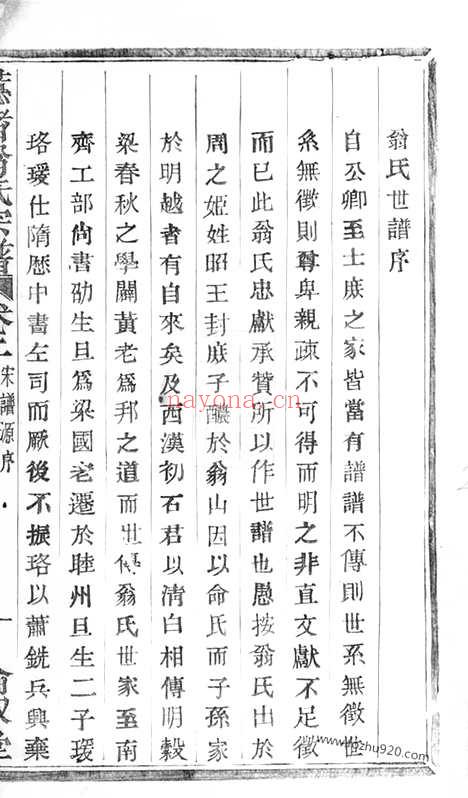 翁氏世譜序
自公卿至士庶之家皆當有譜譜不傳則世系無徵世
系無徵則尊卑親疎不可得而明之非直文獻不足徵
而已此翁氏忠獻承贊所以作世譜也愚按翁氏出於
周之姬姓昭王封庶子於翁山因以命氏而子孫家
於明越者有自來矣及西漢初石君以清白相傳明穀
梁春秋之學闢黃老為邦之道而世傳翁氏世家至南
齊工部尚書劭生旦為梁國老遷於睦州旦生二子瑗
珞瑗仕隋歴中書左司而厥後不振珞以蕭銑兵興棄
翁氏宗譜 卷二 宋譜源序 一
nayona.cn
nzhu920.com